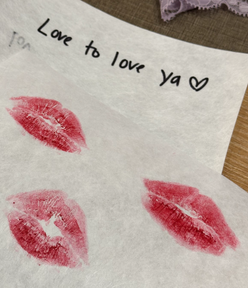 Love to love ya♡